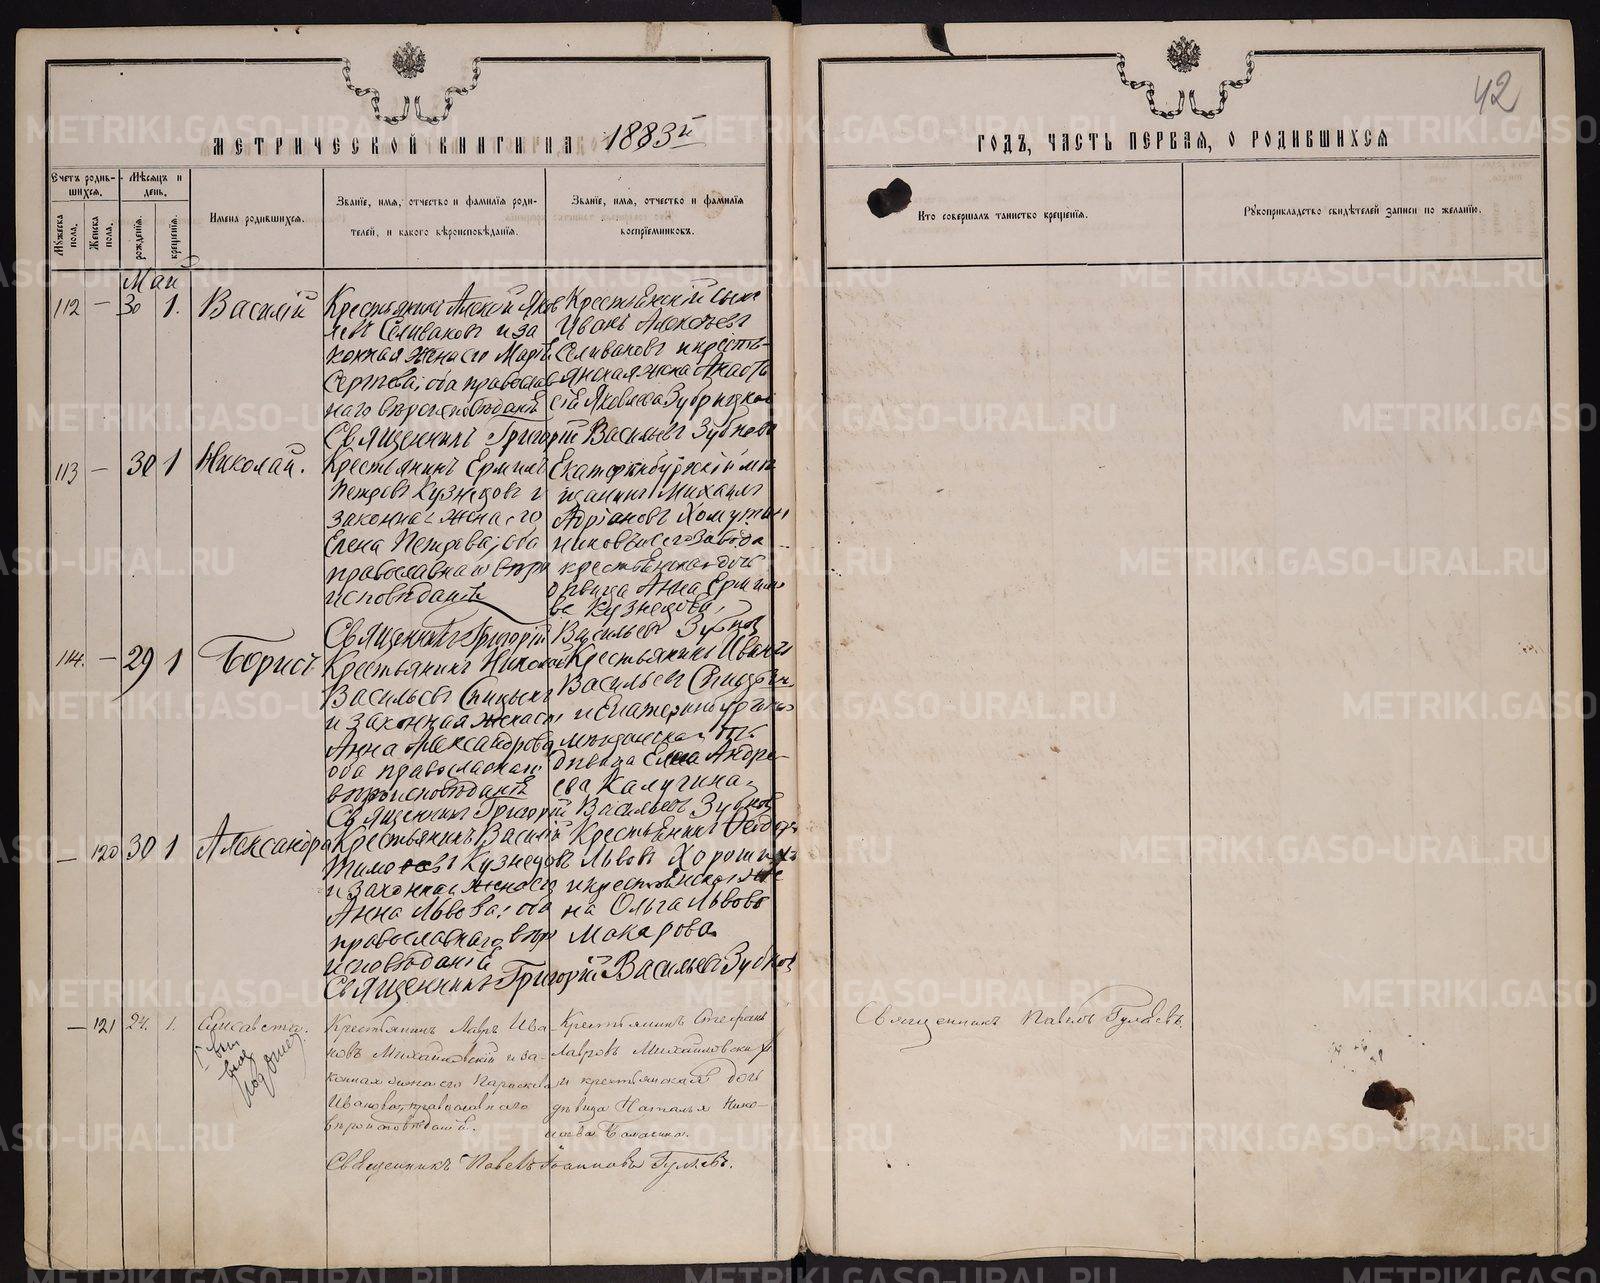 42
МЕТРИЧЕСКОЙ КНИГИ НА 1883й
ГОДЪ, ЧАСТЬ ПЕРВАЯ, О РОДИВШИХСЯ
Счетъ родив-
шихся.
Мужеска пола.
Женска пола.
Мѣсяцъ и
день.
рожденія.
крещенія.
Имена родившихся.
Званіе, имя, отчество и фамилія роди-
телей, и какого вѣроисповѣданія.
Званіе, имя, отчество и фамилія
воспріемниковъ.
Кто совершалъ таинство крещенія.
Рукоприкладство свидѣтелей записи по желанію.
Май
112 — 30 1. Василій
Крестьянинъ Алексѣй Яков
левъ Селивановъ и за
конная жена его
Сергѣева, оба православ
наго вѣроисповѣданія
Иванъ Алексѣевъ
Селивановъ и кресть-
янская жена Анаста
сія Яковлева
Священникъ Григорій Васильевъ Зубковъ
113 — 30 1 Николай.
Крестьянинъ Ермилъ
Петровъ Кузнецовъ и
законная жена его
Елена Петрова, оба
православнаго вѣро
исповѣданія
Екатеринбургскій мѣ
щанинъ Михаилъ
Адріановъ
крестьянская дочь
дѣвица Анна Ермило
ва Кузнецова,
Священникъ Григорій Васильевъ Зубковъ
114. — 29 1 Борисъ
Крестьянинъ Николай
Васильевъ Спицынъ
и законная жена его
Анна Александрова
оба православнаго
вѣроисповѣданія
Крестьянинъ Иванъ
Васильевъ Спицынъ
дѣвица Елена Андре-
ева Калугина
Священникъ Григорій Васильевъ Зубковъ
— 120 30 1 Александра
Крестьянинъ Василій
Кузнецовъ
и законная жена его
Анна Львова, оба
православнаго вѣро
исповѣданія
Крестьянинъ Ѳедоръ
Львовъ Хорошихъ
и крестьянская же
на Ольга Львова
Макарова
Священникъ Григорій Васильевъ Зубковъ
— 121 24. 1. Елисавета.
Крестьянинъ Лавръ Ива-
новъ Михайловскій и за-
конная жена его Параскева
Иванова, православнаго
вѣроисповѣданія.
Крестьянинъ Стефанъ
Лавровъ Михайловскій
и крестьянская дочь
дѣвица Наталья Нико-
лаева
Священникъ Павелъ Іоанновъ Гуляевъ.
Священникъ Павелъ Гуляевъ.